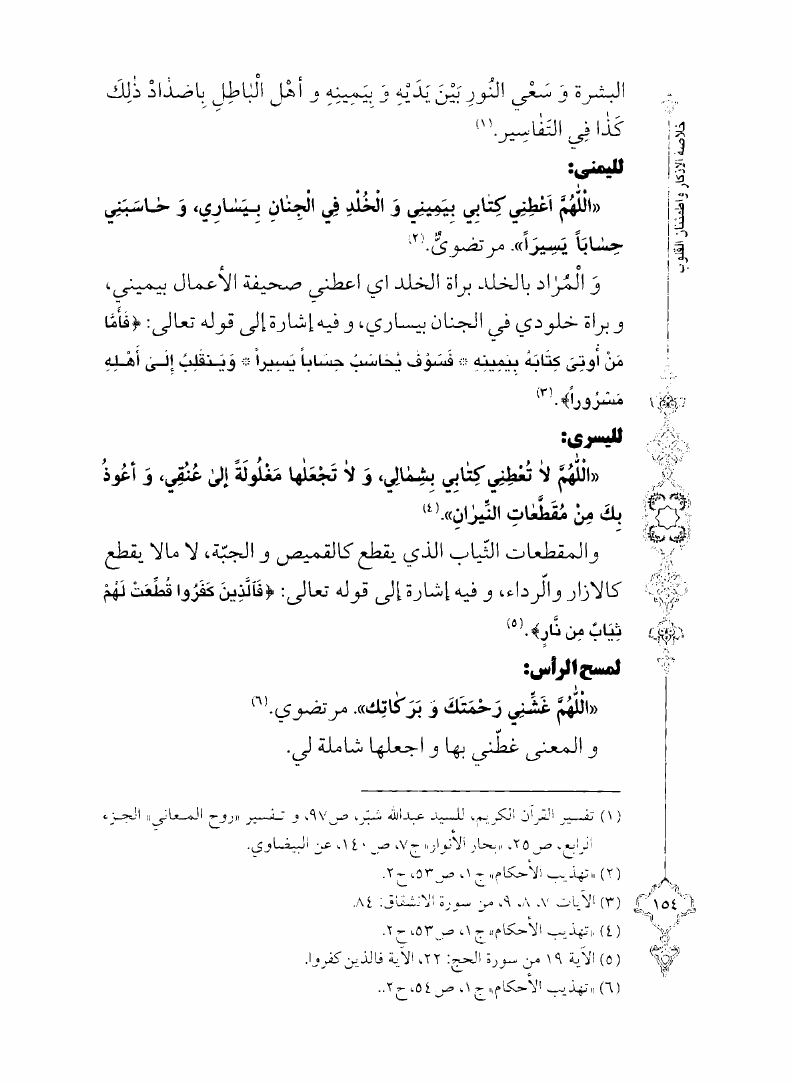 خلاصة الاذكار واطمئنان القلوب
البشرة وَ سَعْي النُورِ بَيْنَ يَدَيْهِ وَ بِيَمِينِهِ و أهْل الْبٰاطِلِ بِاضدٰادْ ذٰلِكَ
كَذٰا فِي التَفٰاسِير.(١)
لليمنى:
«اللّٰهُمَّ اَعْطِنِي كِتٰابِي بِيَمِينِي وَ الْخُلْدِ فِي الْجِنٰانِ بِـيَسٰارِي، وَ حٰـاسَبَنِي
حِسٰابَاً يَسِيرَاً». مرتضويٌّ.(٢)
وَ الْمُرٰاد بالخلد براة الخلد اي اعطني صحيفة الأعمال بيميني،
و براة خلودي في الجنان بيساري، و فيه إشارة إلى قوله تعالى: ﴿فَأَمَّا
مَنْ أُوتِىَ كِتَابَهُ بِيَمِينِهِ * فَسَوْفَ يُحَاسَبُ حِسَاباً يَسِيراً * وَيَـنقَلِبُ إِلَـىٰ أَهْـلِهِ
مَسْرُوراً﴾.(٣)
لليسرى:
«اللّٰهُمَّ لاٰ تُعْطِنِي كِتٰابِي بِشِمٰالِي، وَ لاٰ تَجْعَلْها مَغْلُولَةً إلىٰ عُنُقِي، وَ أعُوذُ
بِكَ مِنْ مُقَطَّعٰاتِ النِّيرٰانِ».(٤)
والمقطعات الثّياب الذي يقطع كالقميص و الجبّة، لا مالا يقطع
كالازار والّرداء، و فيه إشارة إلى قوله تعالى: ﴿فَآلَّذِينَ كَفَرُوا قُطِّعَتْ لَهُمْ
ثِيَابٌ مِن نَّارٍ﴾.(٥)
لمسح الرأس:
«اللّٰهُمَّ غَشِّنِي رَحْمَتَكَ وَ بَرَكٰاتِك». مرتضوي.(٦)
و المعنى غطّني بها و اجعلها شاملة لي.
(١) تفسير القرآن الكريم، للسيد عبدالله شبّر، ص٩٧، و تـفسير «روح المـعاني» الجـزء
الرابع، ص٢٥، «بحار الأنوار» ج٧، ص١٤٠، عن البيضاوي.
(٢) «تهذيب الأحكام» ج١، ص٥٣، ح٢.
(٣) الآيات ٧، ٨، ٩، من سورة الانشقاق: ٨٤.
(٤) «تهذيب الأحكام» ج١، ص٥٣، ح٢.
(٥) الآية ١٩ من سورة الحج: ٢٢، الآية فالذين كفروا.
(٦) «تهذيب الأحكام» ج١، ص٥٤، ح٢..
١٥٤